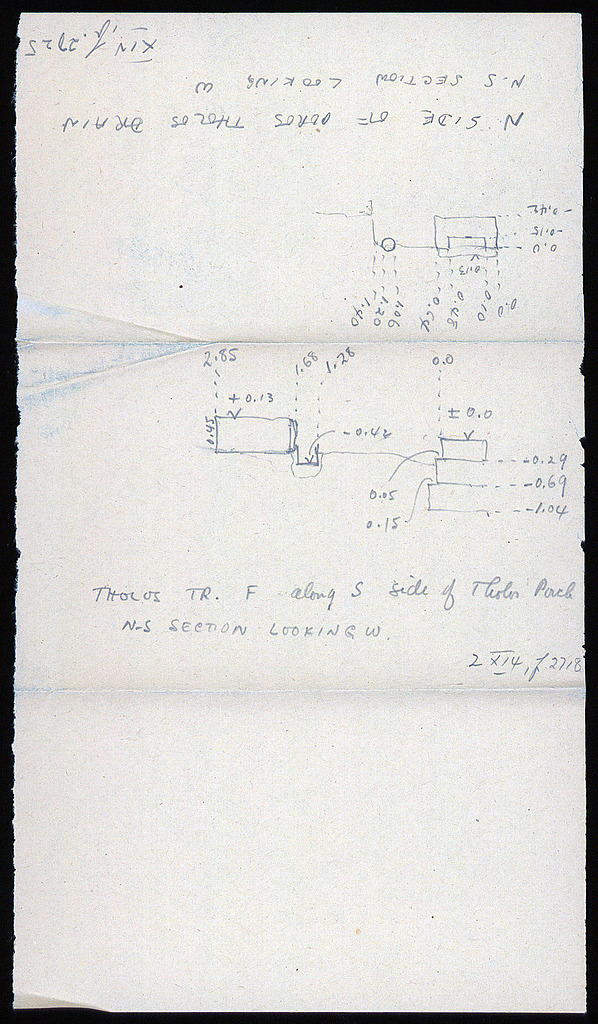 XIV, f. 2725
N-S SECTION LOOKING W
N SIDE OF POROS THOLOS DRAIN
-0.42
-0.15
0.0
0.13
1.40
1.20
1.06
0.48
0.10
0.0
2.85
1.68
1.28
0.0
+ 0.13
± 0.0
0.45
-0.42
-0.29
-0.69
-1.04
0.05
0.15
THOLOS TR. F along S side of Tholos Porch
N-S SECTION LOOKING W.
2 XI4, f 2718